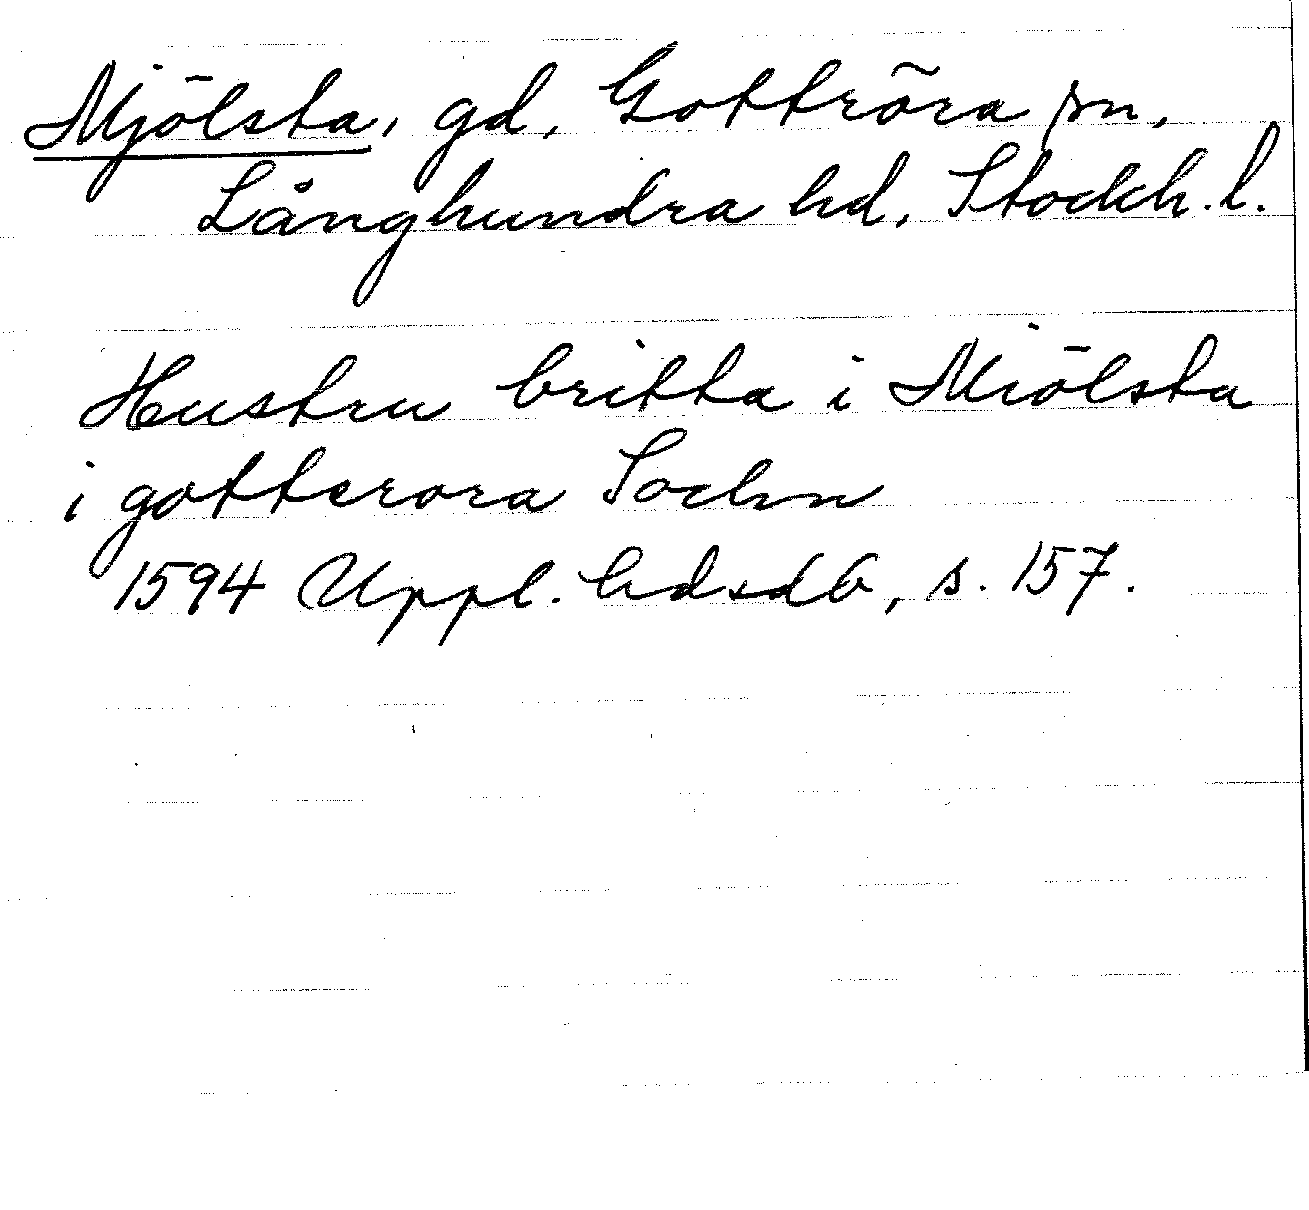 Mjölsta, gd, Gottröra sn,
Långhundra hd, Stockh. l.
Hustru britta i Miölsta
i gotterora Sochn
1594 Uppl. hdsdb, s. 157.